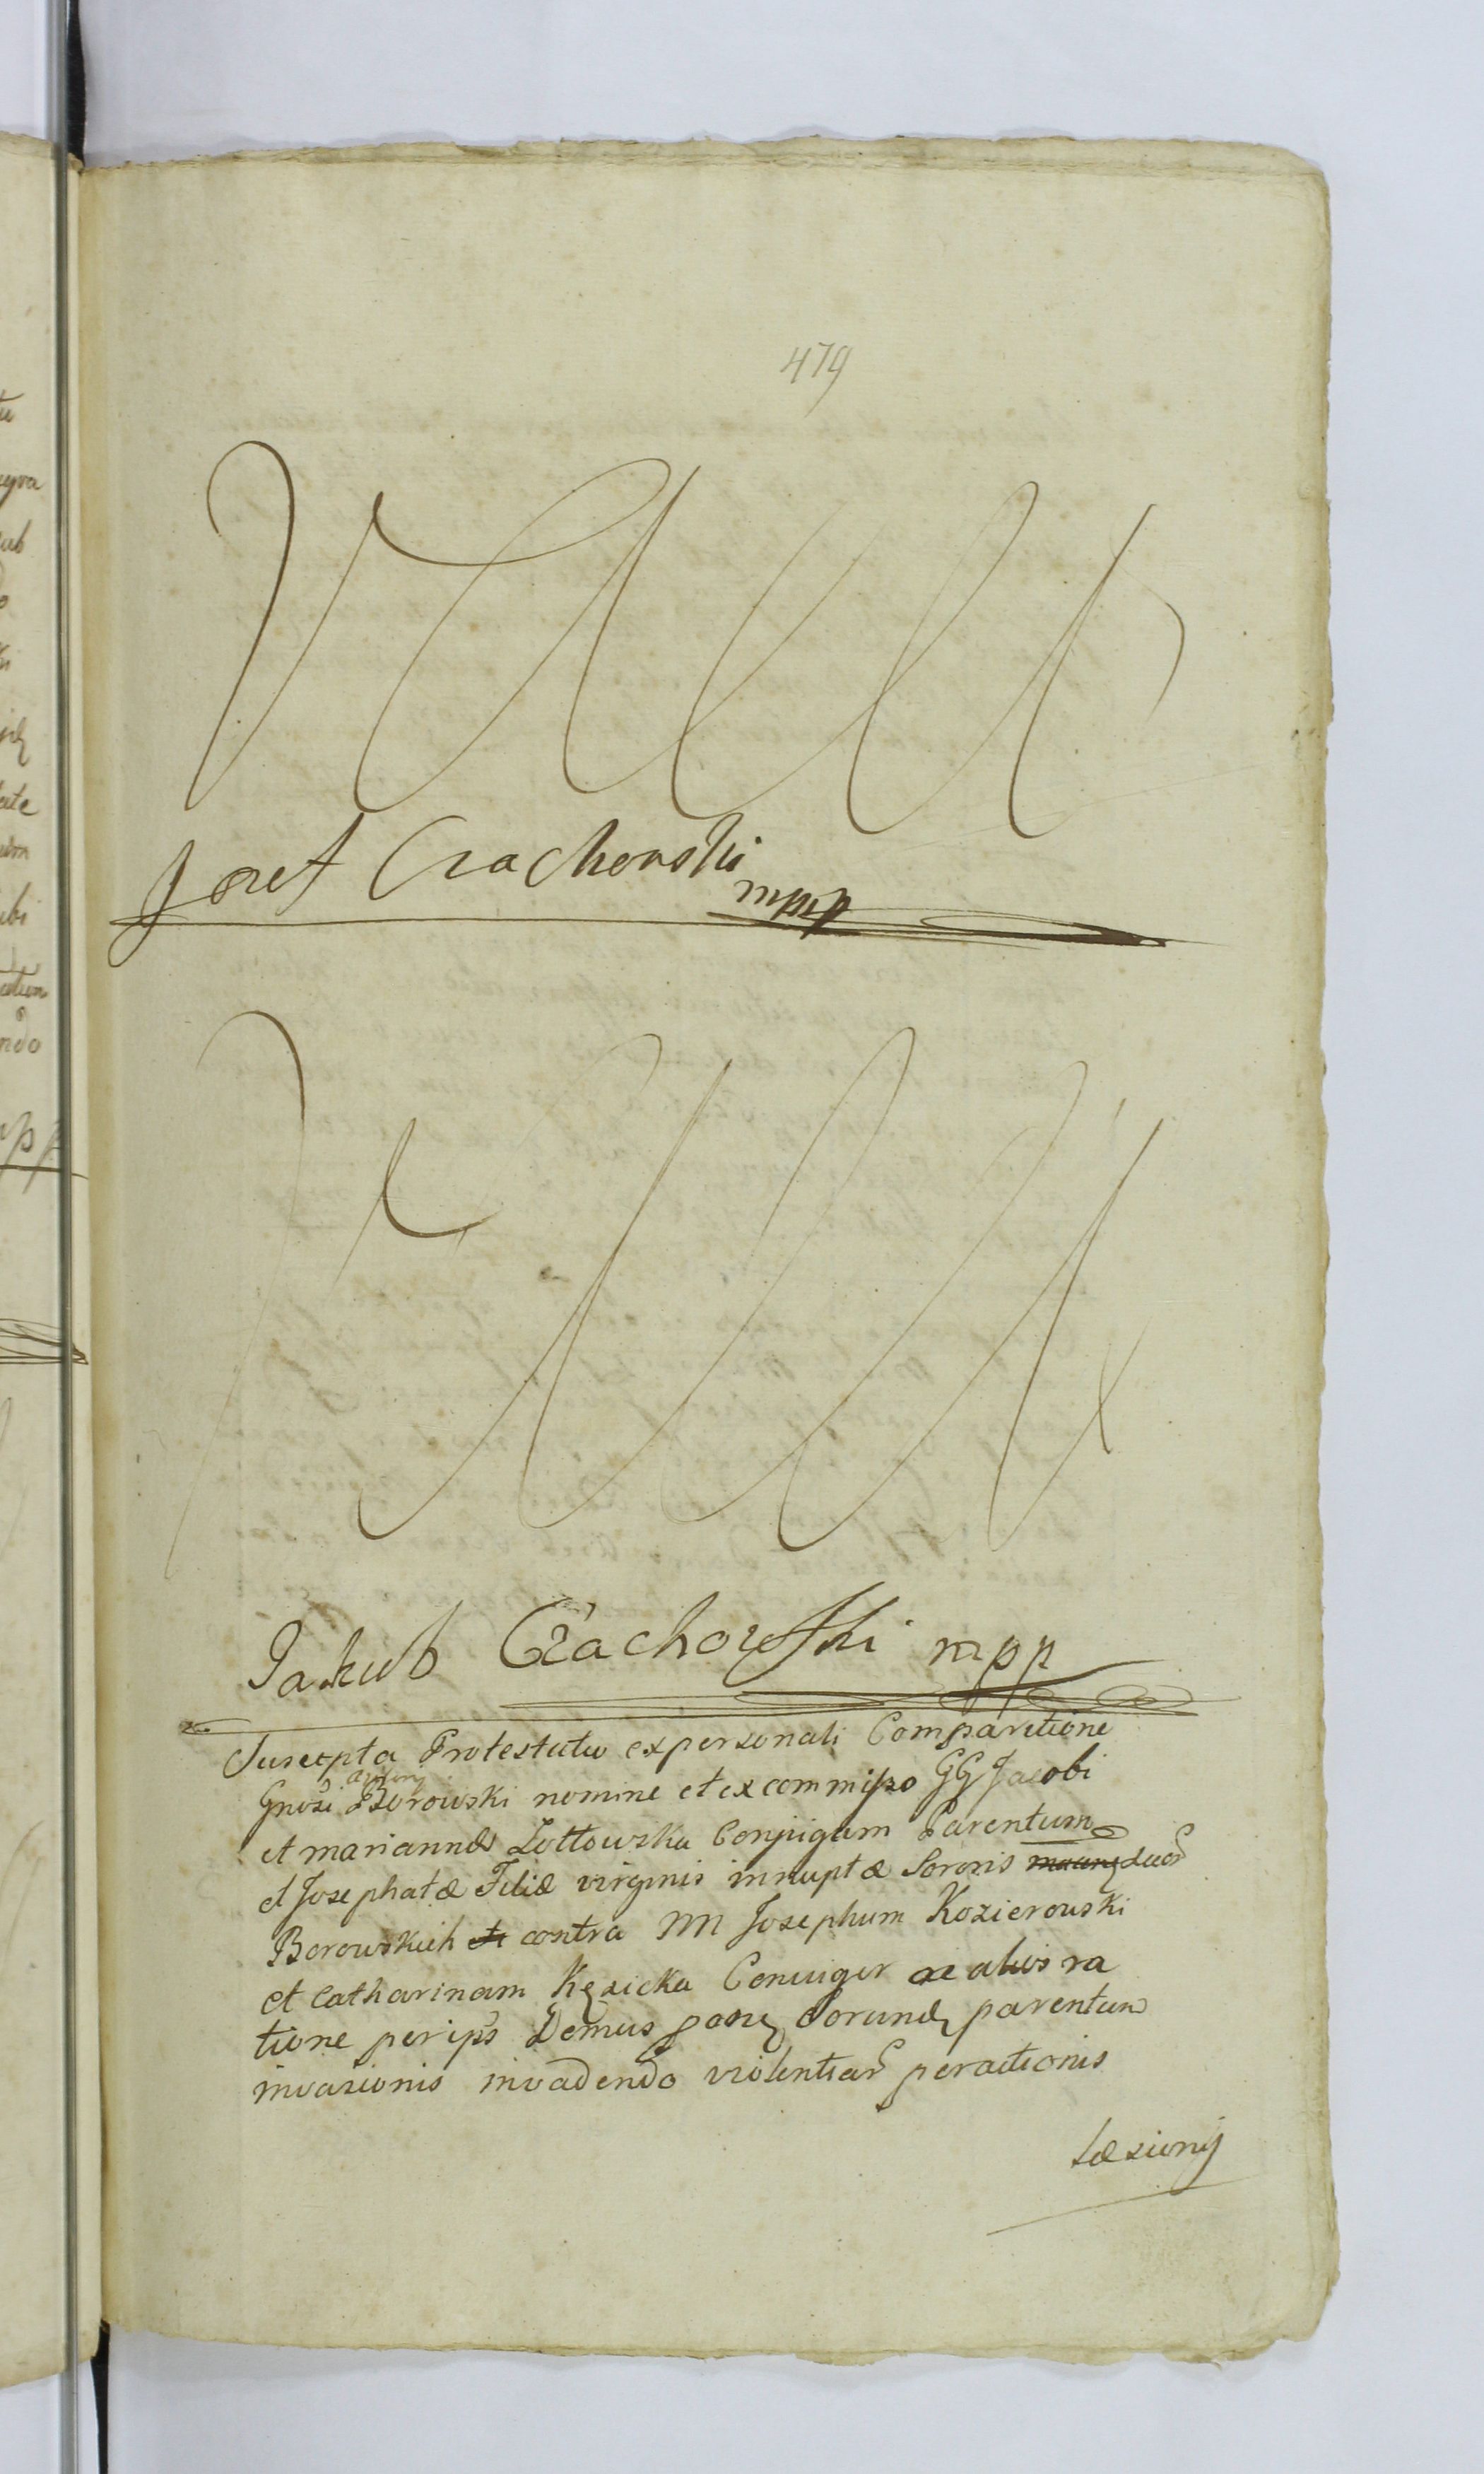 479
Jozef Czachowski
mpp
Jakub Czachowski mpp
Suscepta Protestatio ex personali Comparitione
Gnosi Borowski nomine et ex commisso GG Jacobi
et mariannæ Zołtowska Conjugum Parentum
et Josephatæ Filiæ virginis innuptæ Sororis
Borowskich et contra MM Josephum Kozierowski
et Catharinam Kęsicka Conuiges ra
tione per ips Domus eorund parentum
invasionis invadendo violentiar peractionis
læsionis